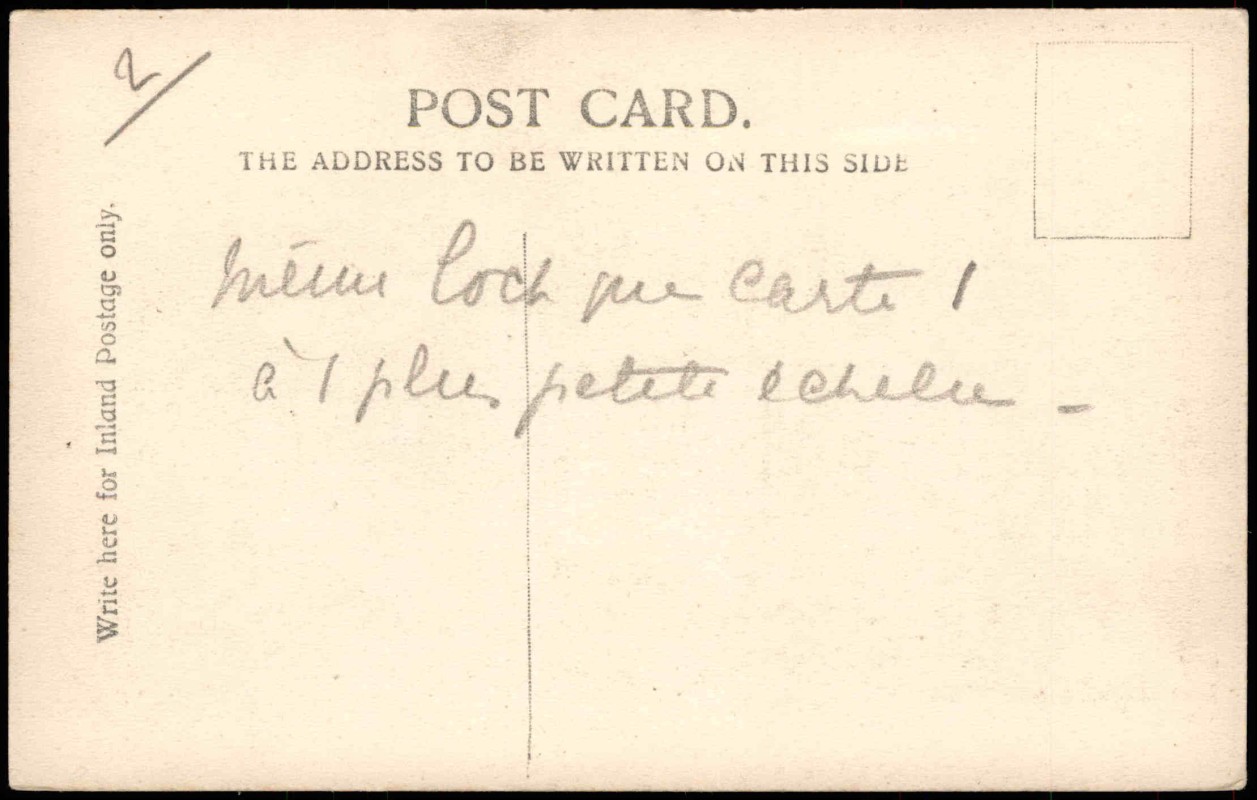 2/
POST CARD.
THE ADDRESS TO BE WRITTEN ON THIS SIDE
Write here for Inland Postage only.
même Loch que carte 1
à 1 plus petite echelle -